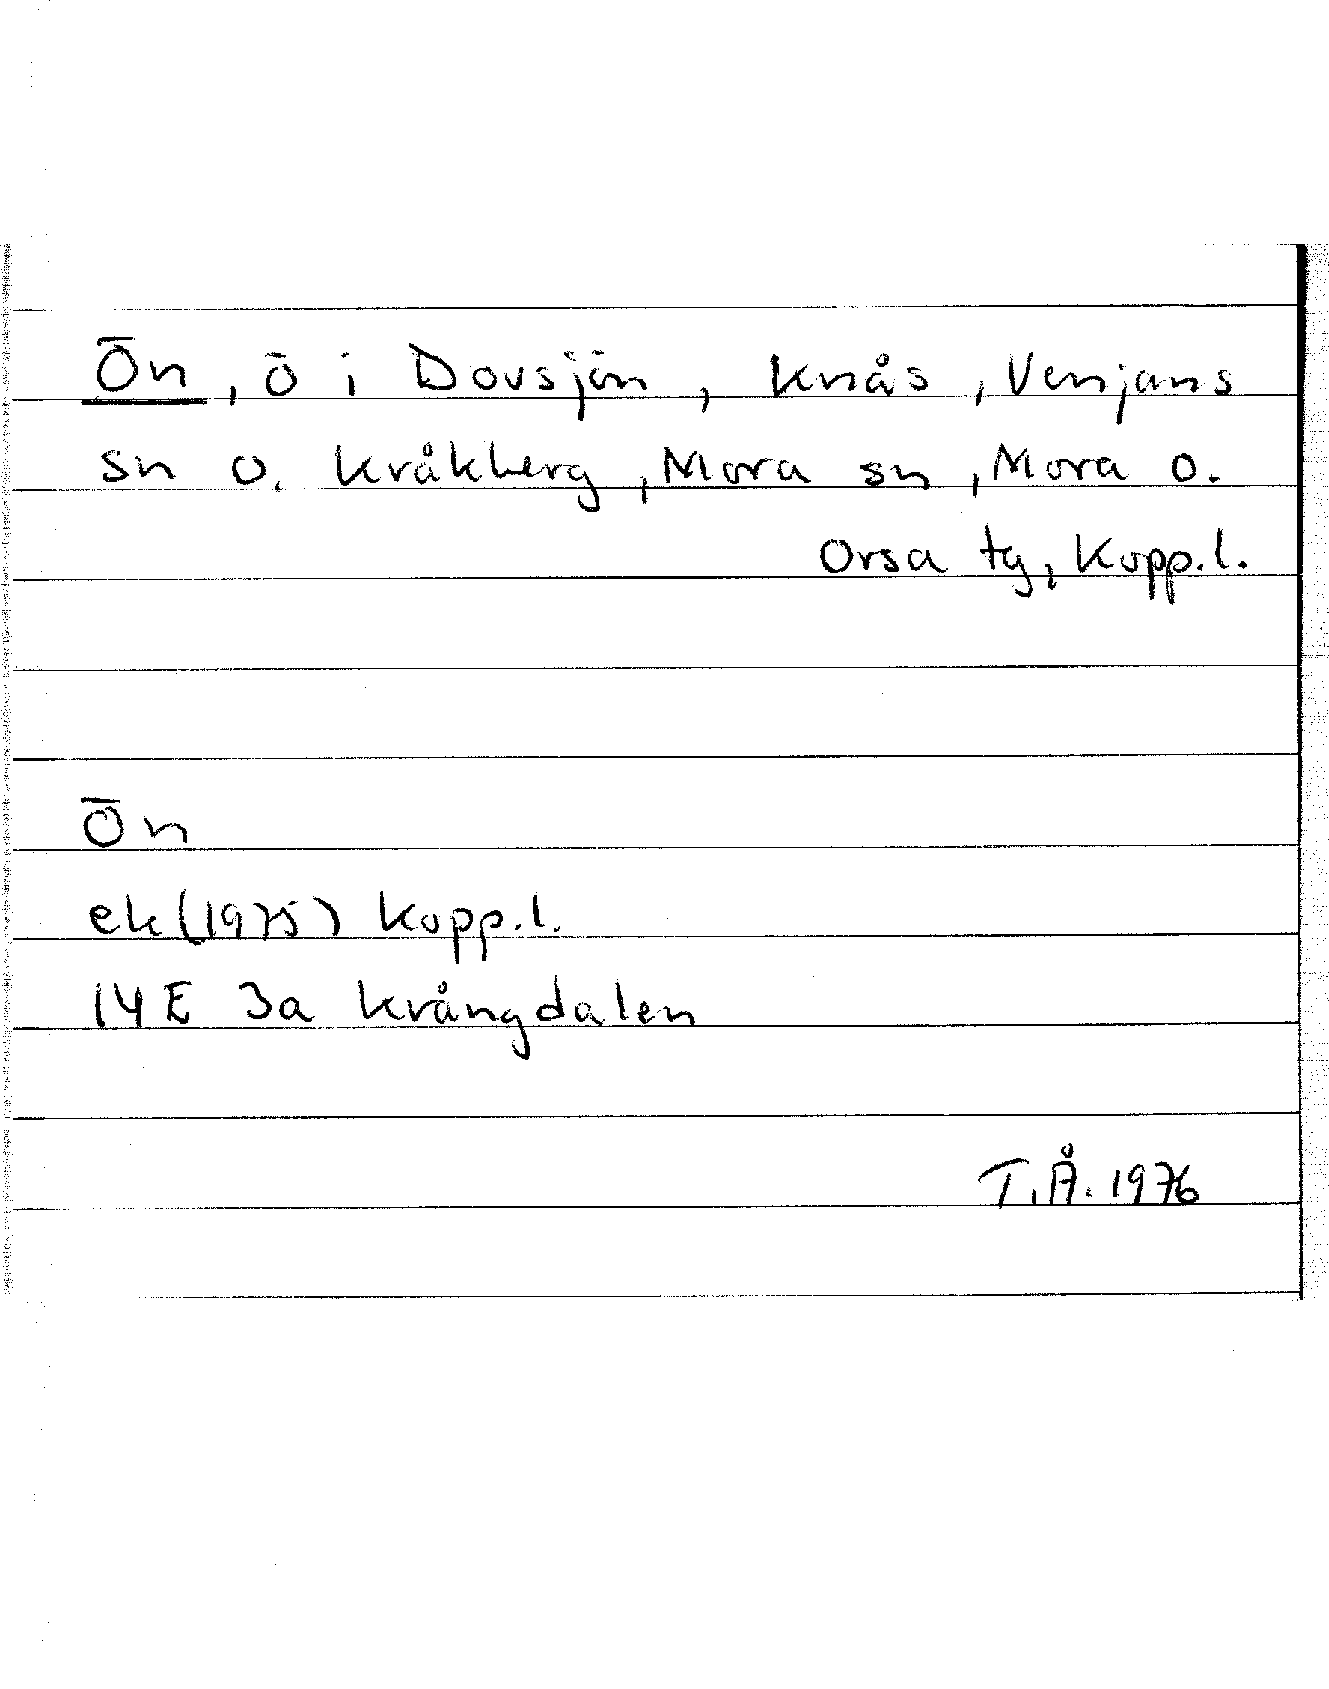 Ön, ö i Dovsjön, Knås, Venjans
sn o. Kråkberg, Mora sn, Mora o.
Orsa tg, Kopp.l.
Ön
ek(1975) Kopp.l.
14E 3a Krångdalen
T.Å. 1976